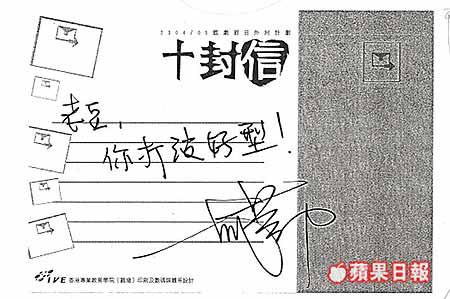 2004/05戲劇節目外判計劃
十封信
老豆,
你打波好型!
IVE 香港專業教育學院(觀塘)印刷及數碼媒體系設計
蘋果日報